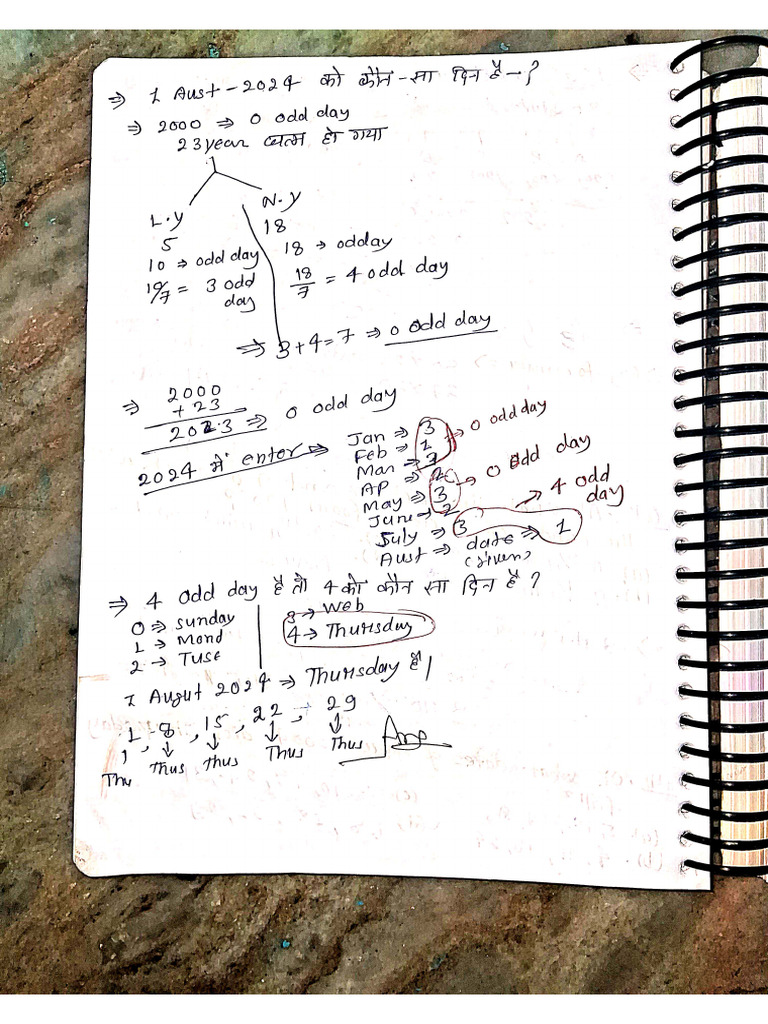 ⇒ 1 Aust - 2024 को कौन-सा दिन है - ?
⇒ 2000 ⇒ 0 odd day
23 year खत्म हो गया
L.y N.y
5 18
10 ⇒ odd day 18 → odday
10/7 = 3 odd day 18/7 = 4 odd day
⇒ 3+4=7 ⇒ 0 odd day
⇒ 2000
+ 23
2023 ⇒ 0 odd day
2024 में enter ⇒
Jan ⇒ 3
Feb ⇒ 1 → 0 odd day
Mar ⇒ 3
AP ⇒ 2
May ⇒ 3 → 0 odd day
June → 2
July ⇒ 3 → 4 odd day
Aust ⇒ date ⇒ 1
(given)
⇒ 4 odd day है तो 4 को कौन सा दिन है ?
0 ⇒ sunday 3 → Web
1 → Mond 4 → Thursday
2 → TUSE
1 August 2024 ⇒ Thursday है|
1 - 8, 15, 22, 29
Thu Thus Thus Thus Thus